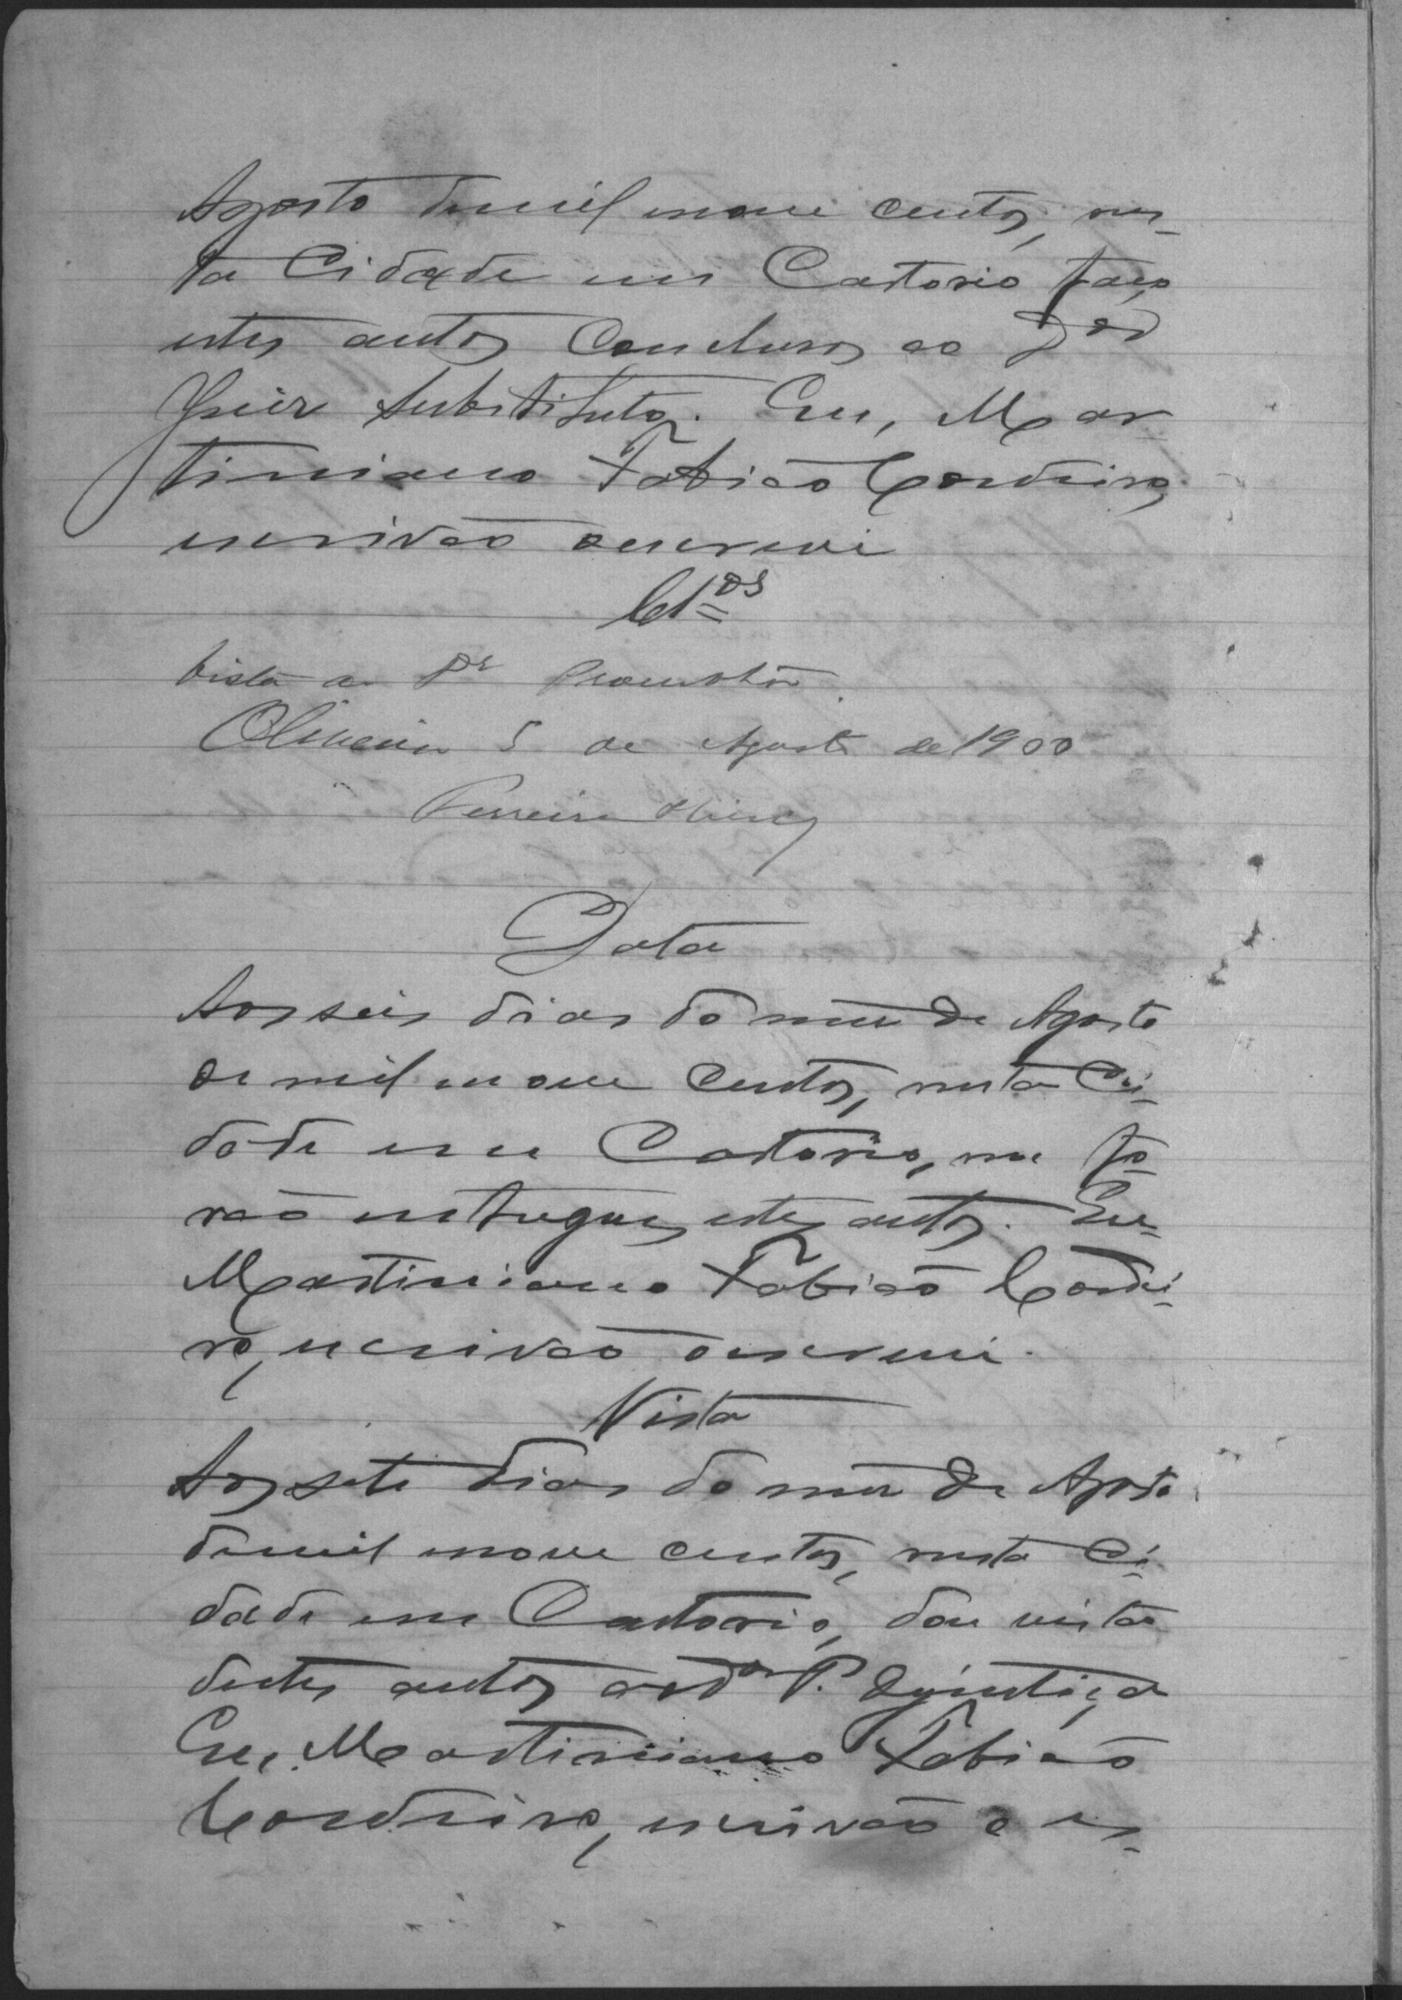 Agosto de mil nove centos, nes-
ta Cidade em Cartorio faço
estes autos conclusos ao
Juiz Substituto. Eu, Mar
timiano Fabião Cordeiro,
escrivão o escrevi
Cl.os
Vista ao Dr Promotor.
Oliveira 5 de Agosto de 1900
Ferreira
Data
Aos seis dias do mez de Agosto
de mil nove centos, nesta Ci-
dade em Cartorio, me fo-
rão entregues estes autos. Eu
Martimiano Fabião Cordei-
ro, escrivão o escrevi.
Vista
Aos sete dias do mez de Agosto
de mil nove centos, nesta Ci-
dade em Cartorio, dou vista
destes autos ao Dor P. Justiça
Eu, Martimiano Fabião
Cordeiro, escrivão o es-